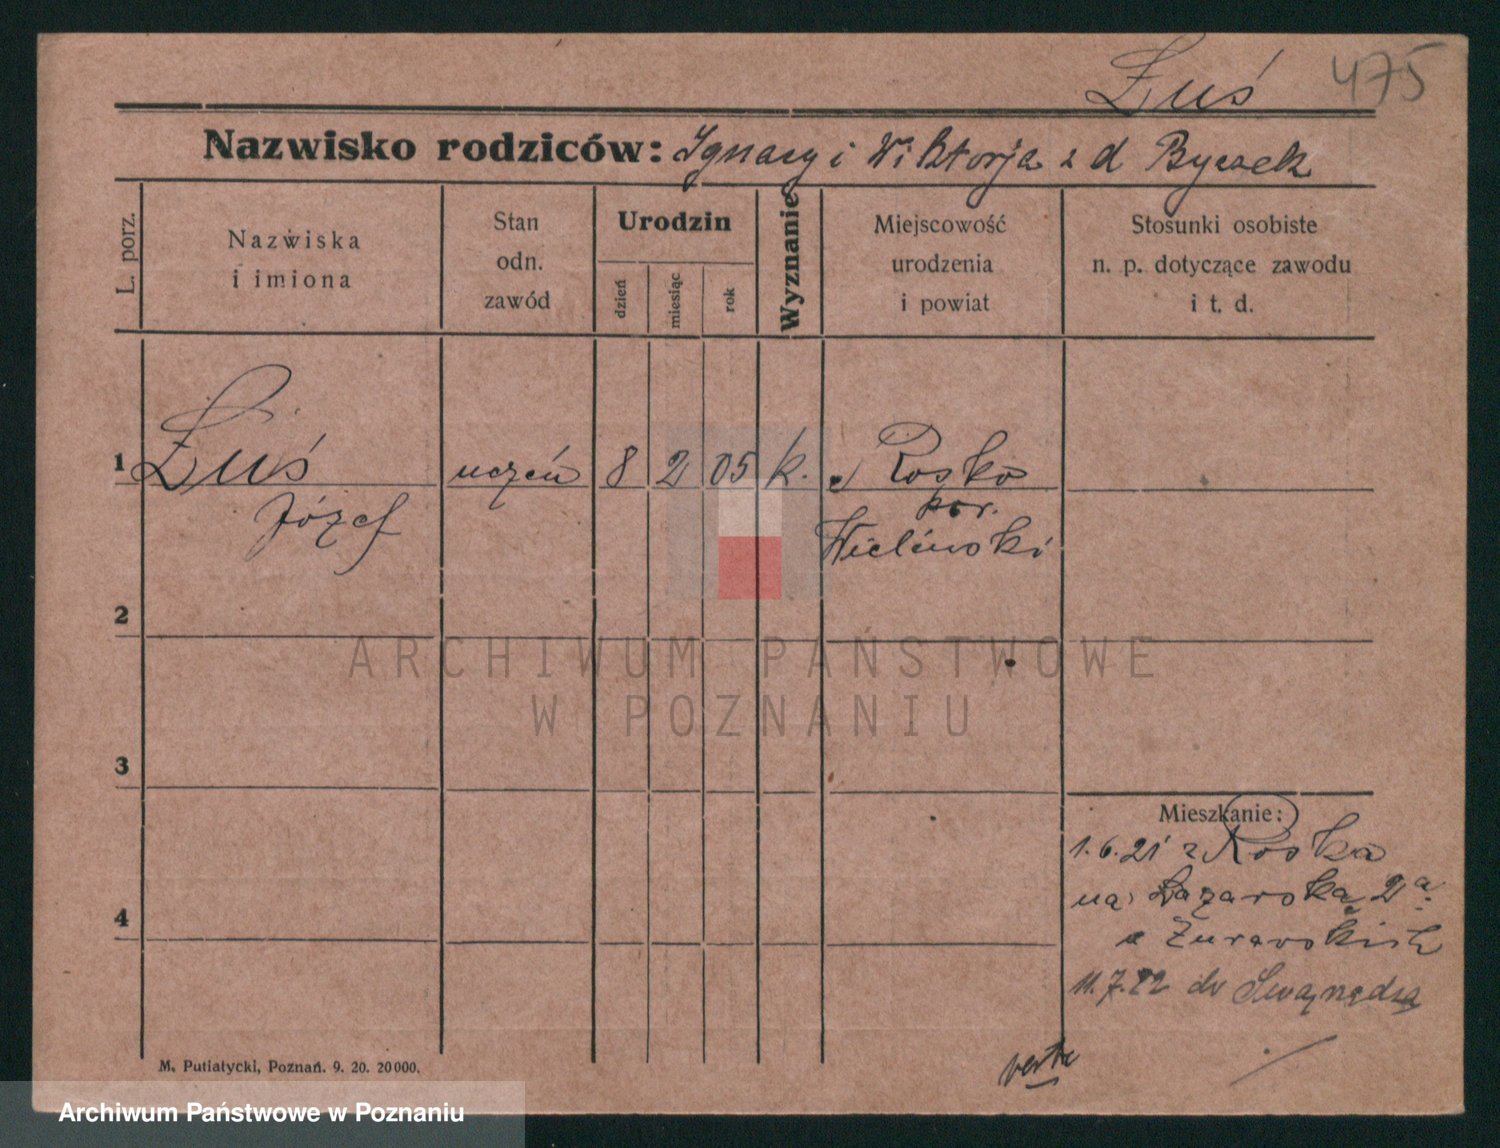 Łuś 475
Nazwisko rodziców: Ignacy i Wiktorja z d Byczek
L. porz.
Nazwiska
i imiona
Stan
odn.
zawód
Urodzin
dzień
miesiąc
rok
Wyznanie
Miejscowość
urodzenia
i powiat
Stosunki osobiste
n. p. dotyczące zawodu
i t. d.
1 Łuś uczeń 8 2 05 k. Rosko
Józef
pow.
Wieleński
2
ARCHIWUM PAŃSTWOWE
W POZNANIU
3
Mieszkanie:
1.6.21 z Roska
na Łazarską 2a
a Żurawskich
4
11.7.22 do Swarzędza
verte
M. Putiatycki, Poznań. 9. 20. 20000.
Archiwum Państwowe w Poznaniu